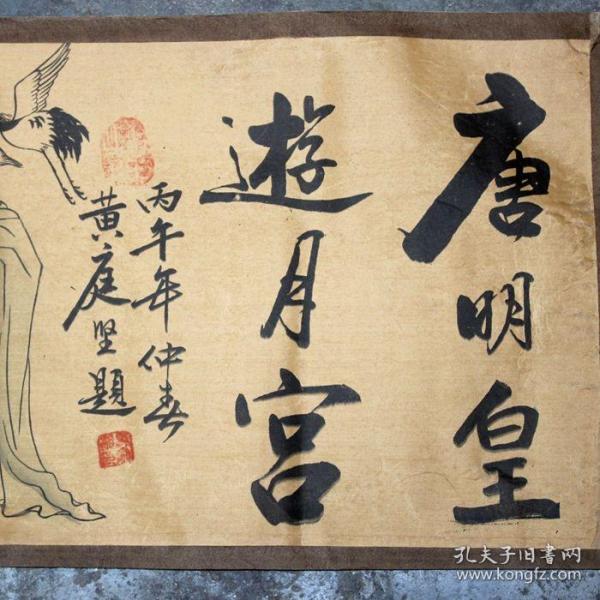 唐明皇
遊月宮
丙午年仲春
黄庭坚題
孔夫子旧书网
www.kongfz.com